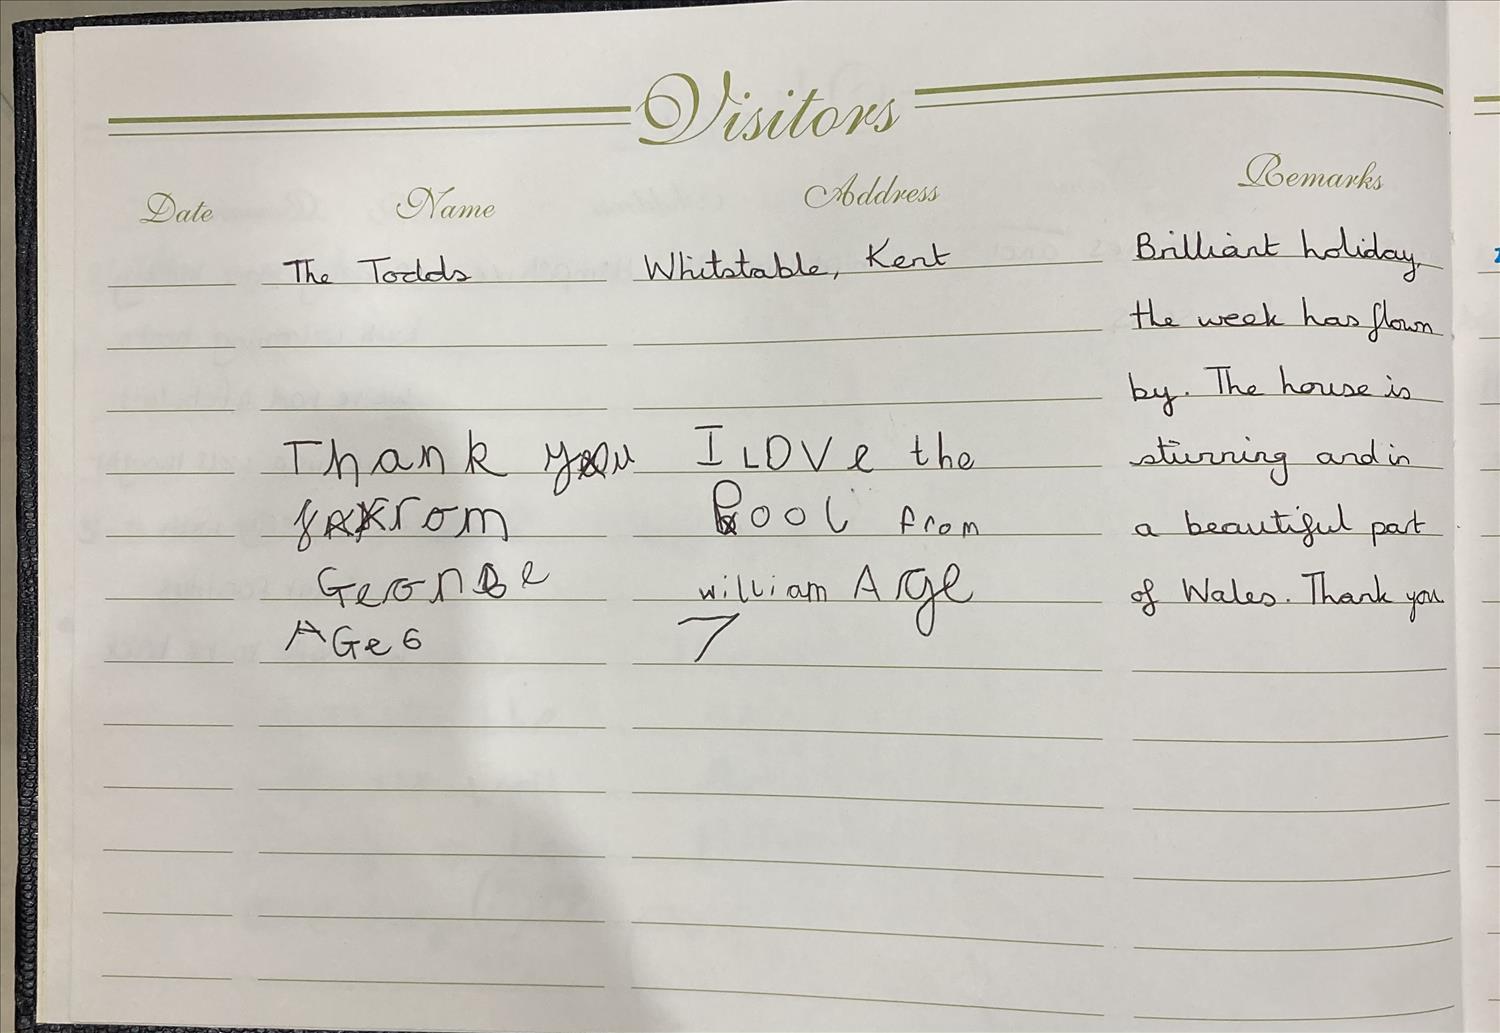 Visitors
Date Name Address Remarks
The Todds Whitstable, Kent Brilliant holiday,
the week has flown
by. The house is
Thank you I LOVe the stunning and in
from Pool from a beautiful part
George william Age of Wales. Thank you
AGe 6 7